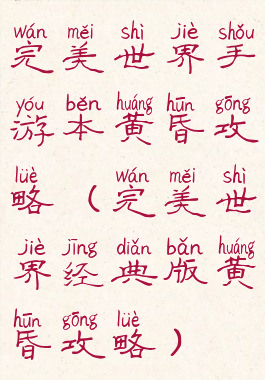 wán měi shì jiè shǒu
完美世界手
yóu běn huáng hūn gōng
游本黄昏攻
lüè wán měi shì
略（完美世
jiè jīng diǎn bǎn huáng
界经典版黄
hūn gōng lüè
昏攻略）